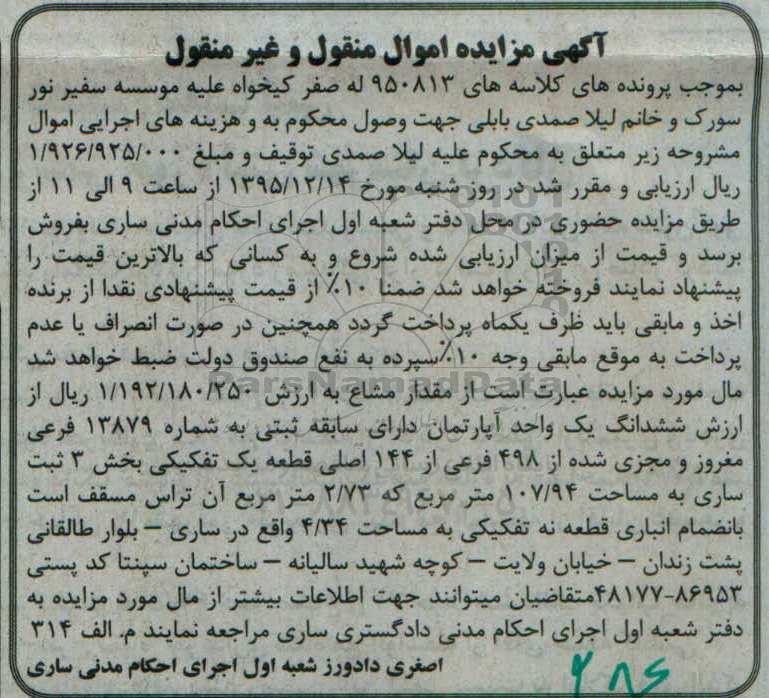 آگهی مزایده اموال منقول و غیر منقول
بموجب پرونده های کلاسه های ۹۵۰۸۱۳ له صفر کیخواه علیه موسسه سفیر نور
سورک و خانم لیلا صمدی بابلی جهت وصول محکوم به و هزینه های اجرایی اموال
مشروحه زیر متعلق به محکوم علیه لیلا صمدی توقیف و مبلغ ۱/۹۲۶/۹۲۵/۰۰۰
ریال ارزیابی و مقرر شد در روز شنبه مورخ ۱۳۹۵/۱۲/۱۴ از ساعت ۹ الی ۱۱ از
طریق مزایده حضوری در محل دفتر شعبه اول اجرای احکام مدنی ساری بفروش
برسد و قیمت از میزان ارزیابی شده شروع و به کسانی که بالاترین قیمت را
پیشنهاد نمایند فروخته خواهد شد ضمنا ۱۰٪ از قیمت پیشنهادی نقدا از برنده
اخذ و مابقی باید ظرف یکماه پرداخت گردد همچنین در صورت انصراف یا عدم
پرداخت به موقع مابقی وجه ۱۰٪سپرده به نفع صندوق دولت ضبط خواهد شد
مال مورد مزایده عبارت است از مقدار مشاع به ارزش ۱/۱۹۲/۱۸۰/۲۵۰ ریال از
ارزش ششدانگ یک واحد آپارتمان دارای سابقه ثبتی به شماره ۱۳۸۷۹ فرعی
مغروز و مجزی شده از ۴۹۸ فرعی از ۱۴۴ اصلی قطعه یک تفکیکی بخش ۳ ثبت
ساری به مساحت ۱۰۷/۹۴ متر مربع که ۲/۷۳ متر مربع آن تراس مسقف است
بانضمام انباری قطعه نه تفکیکی به مساحت ۴/۳۴ واقع در ساری – بلوار طالقانی
پشت زندان – خیابان ولایت – کوچه شهید سالیانه – ساختمان سپنتا کد پستی
۴۸۱۷۷-۸۶۹۵۳متقاضیان میتوانند جهت اطلاعات بیشتر از مال مورد مزایده به
دفتر شعبه اول اجرای احکام مدنی دادگستری ساری مراجعه نمایند م. الف ۳۱۴
اصغری دادورز شعبه اول اجرای احکام مدنی ساری
ParsNamadData